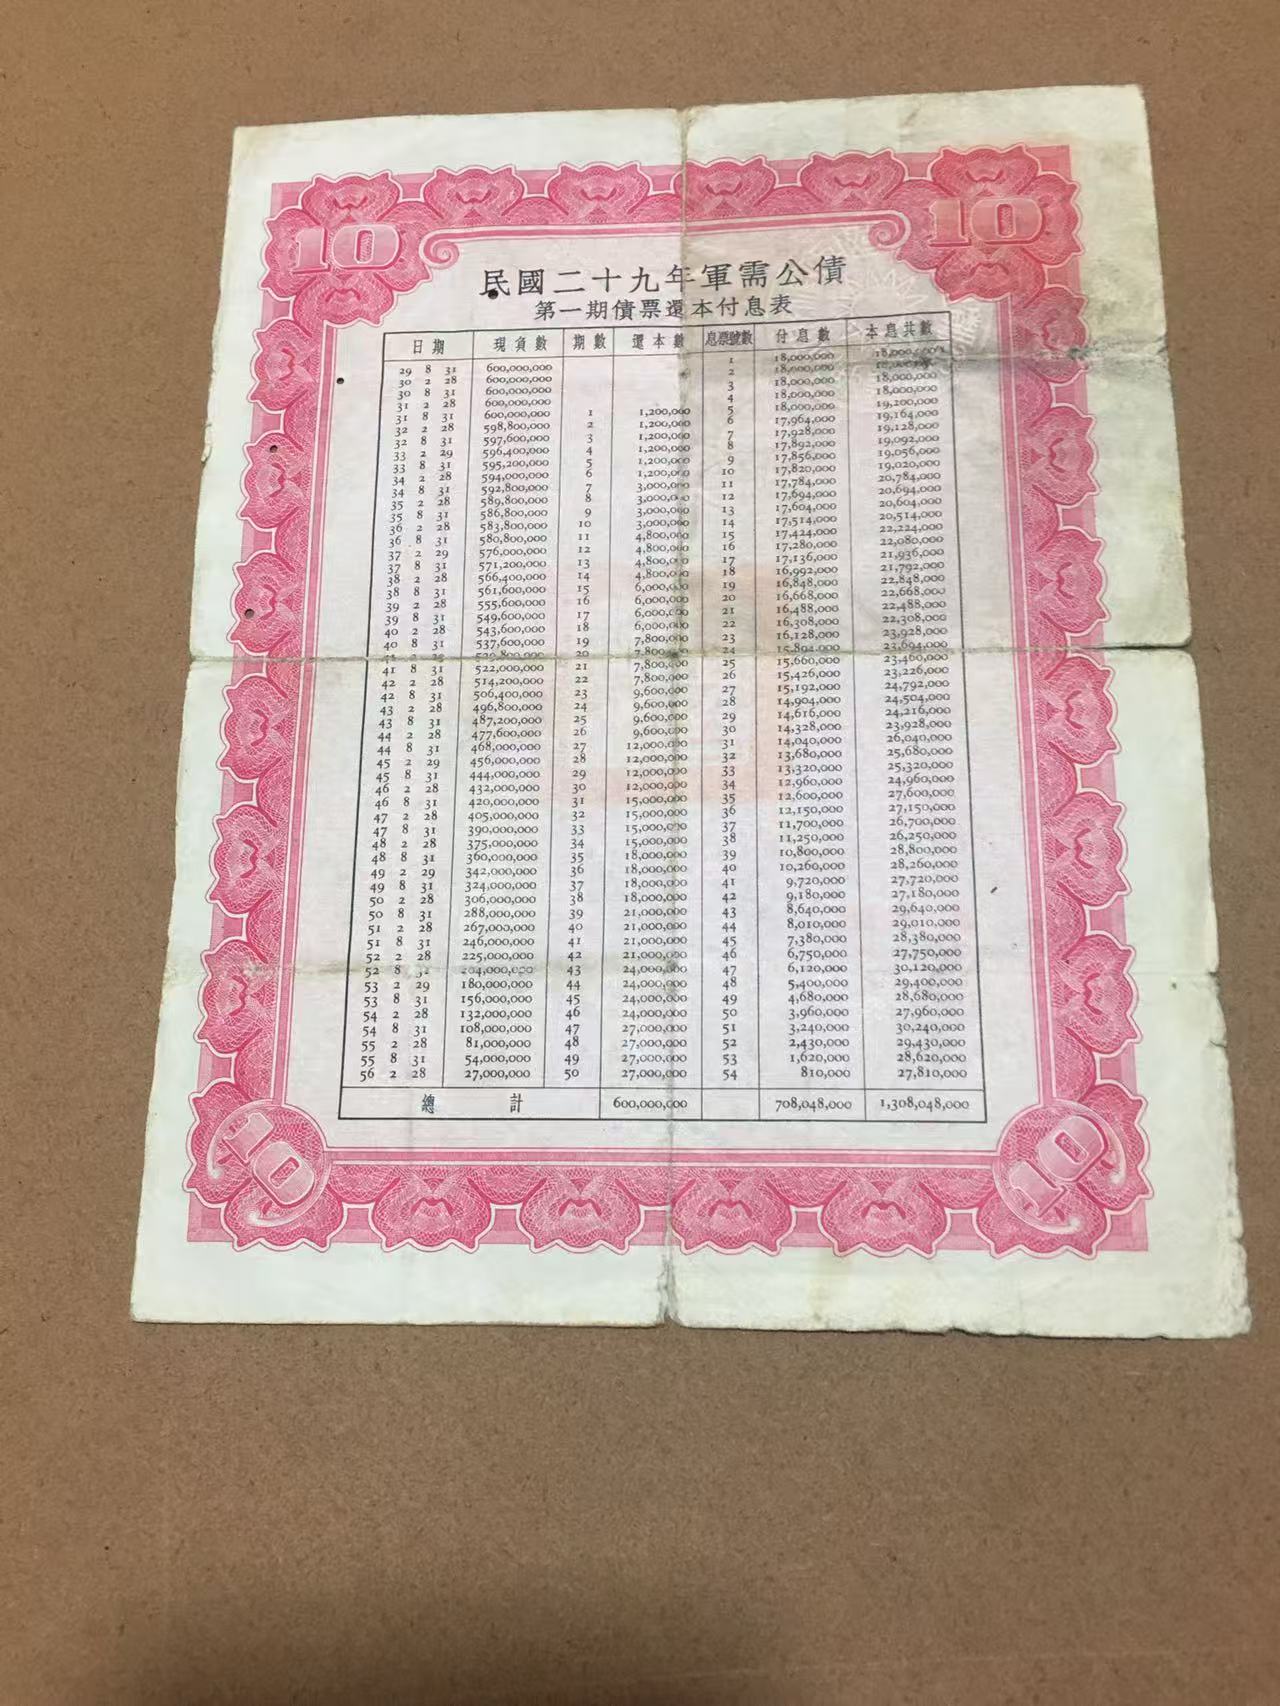 10 10
民國二十九年軍需公債
第一期債票還本付息表
日期 現負數 期數 還本數 息票號數 付息數 本息共數
29 8 31 600,000,000 1 18,000,000 18,000,000
30 2 28 600,000,000 2 18,000,000 18,000,000
30 8 31 600,000,000 3 18,000,000 18,000,000
31 2 28 600,000,000 4 18,000,000 18,000,000
31 8 31 600,000,000 1 1,200,000 5 18,000,000 19,200,000
32 2 28 598,800,000 2 1,200,000 6 17,964,000 19,164,000
32 8 31 597,600,000 3 1,200,000 7 17,928,000 19,128,000
33 2 29 596,400,000 4 1,200,000 8 17,892,000 19,092,000
33 8 31 595,200,000 5 1,200,000 9 17,856,000 19,056,000
34 2 28 594,000,000 6 1,200,000 10 17,820,000 19,020,000
34 8 31 592,800,000 7 3,000,000 11 17,784,000 20,784,000
35 2 28 589,800,000 8 3,000,000 12 17,694,000 20,694,000
35 8 31 586,800,000 9 3,000,000 13 17,604,000 20,604,000
36 2 28 583,800,000 10 3,000,000 14 17,514,000 20,514,000
36 8 31 580,800,000 11 4,800,000 15 17,424,000 22,224,000
37 2 29 576,000,000 12 4,800,000 16 17,280,000 22,080,000
37 8 31 571,200,000 13 4,800,000 17 17,136,000 21,936,000
38 2 28 566,400,000 14 4,800,000 18 16,992,000 21,792,000
38 8 31 561,600,000 15 6,000,000 19 16,848,000 22,848,000
39 2 28 555,600,000 16 6,000,000 20 16,668,000 22,668,000
39 8 31 549,600,000 17 6,000,000 21 16,488,000 22,488,000
40 2 28 543,600,000 18 6,000,000 22 16,308,000 22,308,000
40 8 31 537,600,000 19 7,800,000 23 16,128,000 23,928,000
41 2 29 529,800,000 20 7,800,000 24 15,894,000 23,694,000
41 8 31 522,000,000 21 7,800,000 25 15,660,000 23,460,000
42 2 28 514,200,000 22 7,800,000 26 15,426,000 23,226,000
42 8 31 506,400,000 23 9,600,000 27 15,192,000 24,792,000
43 2 28 496,800,000 24 9,600,000 28 14,904,000 24,504,000
43 8 31 487,200,000 25 9,600,000 29 14,616,000 24,216,000
44 2 28 477,600,000 26 9,600,000 30 14,328,000 23,928,000
44 8 31 468,000,000 27 12,000,000 31 14,040,000 26,040,000
45 2 29 456,000,000 28 12,000,000 32 13,680,000 25,680,000
45 8 31 444,000,000 29 12,000,000 33 13,320,000 25,320,000
46 2 28 432,000,000 30 12,000,000 34 12,960,000 24,960,000
46 8 31 420,000,000 31 15,000,000 35 12,600,000 27,600,000
47 2 28 405,000,000 32 15,000,000 36 12,150,000 27,150,000
47 8 31 390,000,000 33 15,000,000 37 11,700,000 26,700,000
48 2 28 375,000,000 34 15,000,000 38 11,250,000 26,250,000
48 8 31 360,000,000 35 18,000,000 39 10,800,000 28,800,000
49 2 29 342,000,000 36 18,000,000 40 10,260,000 28,260,000
49 8 31 324,000,000 37 18,000,000 41 9,720,000 27,720,000
50 2 28 306,000,000 38 18,000,000 42 9,180,000 27,180,000
50 8 31 288,000,000 39 21,000,000 43 8,640,000 29,640,000
51 2 28 267,000,000 40 21,000,000 44 8,010,000 29,010,000
51 8 31 246,000,000 41 21,000,000 45 7,380,000 28,380,000
52 2 28 225,000,000 42 21,000,000 46 6,750,000 27,750,000
52 8 31 204,000,000 43 24,000,000 47 6,120,000 30,120,000
53 2 29 180,000,000 44 24,000,000 48 5,400,000 29,400,000
53 8 31 156,000,000 45 24,000,000 49 4,680,000 28,680,000
54 2 28 132,000,000 46 24,000,000 50 3,960,000 27,960,000
54 8 31 108,000,000 47 27,000,000 51 3,240,000 30,240,000
55 2 28 81,000,000 48 27,000,000 52 2,430,000 29,430,000
55 8 31 54,000,000 49 27,000,000 53 1,620,000 28,620,000
56 2 28 27,000,000 50 27,000,000 54 810,000 27,810,000
總計 600,000,000 708,048,000 1,308,048,000
10 10